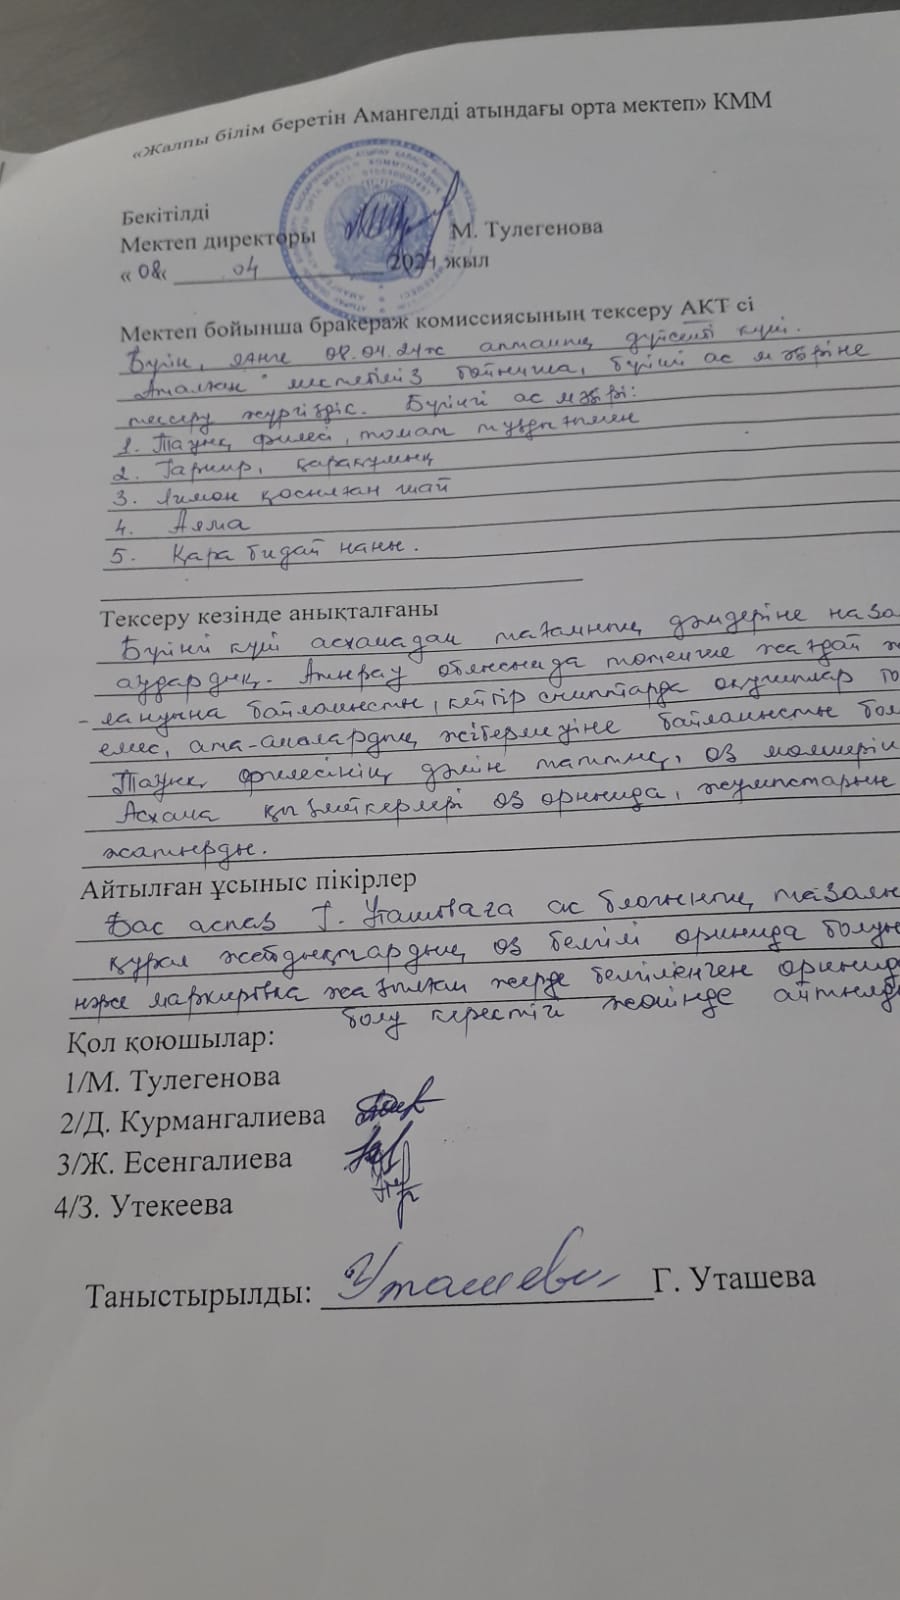 «Жалпы білім беретін Амангелді атындағы орта мектеп» КММ
Бекітілді
Мектеп директоры М. Тулегенова
« 08« 04 2024 жыл
Мектеп бойынша бракераж комиссиясының тексеру АКТ сі
Бүгін, яғни 08.04.24ж аптаның дүйсенбі күні.
Аталған мектебіміз бойынша, бүгінгі ас мәзіріне
тексеру жүргіздік. Бүгінгі ас мәзірі:
1. Тауық филесі, томат тұздығымен
2. Гарнир, қарақұмық
3. Лимон қосылған шай
4. Алма
5. Қара бидай наны.
Тексеру кезінде анықталғаны
Бүгінгі күні асханадан тағамның дәмдеріне наза
аудардық. Атырау облысында төтенше жағдай ж
- лануына байланысты, кейбір сыныптарда оқушылар то
емес, ата-аналардың жібермеуіне байланысты бол
Тауық филесінің дәмін таттық, өз мөлшерін
Асхана қызметкерлері өз орнында, жұмыстарын
жатырды.
Айтылған ұсыныс пікірлер
Бас аспаз Г. Уташеваға ас блогының тазалы
құрал жабдықтардың өз белгілі орнында болуы
және маркировка жазылған жерде белгіленген орнында
болу керектігі жөнінде айтылды
Қол қоюшылар:
1/М. Тулегенова
2/Д. Курмангалиева
3/Ж. Есенгалиева
4/З. Утекеева
Таныстырылды: Уташева Г. Уташева